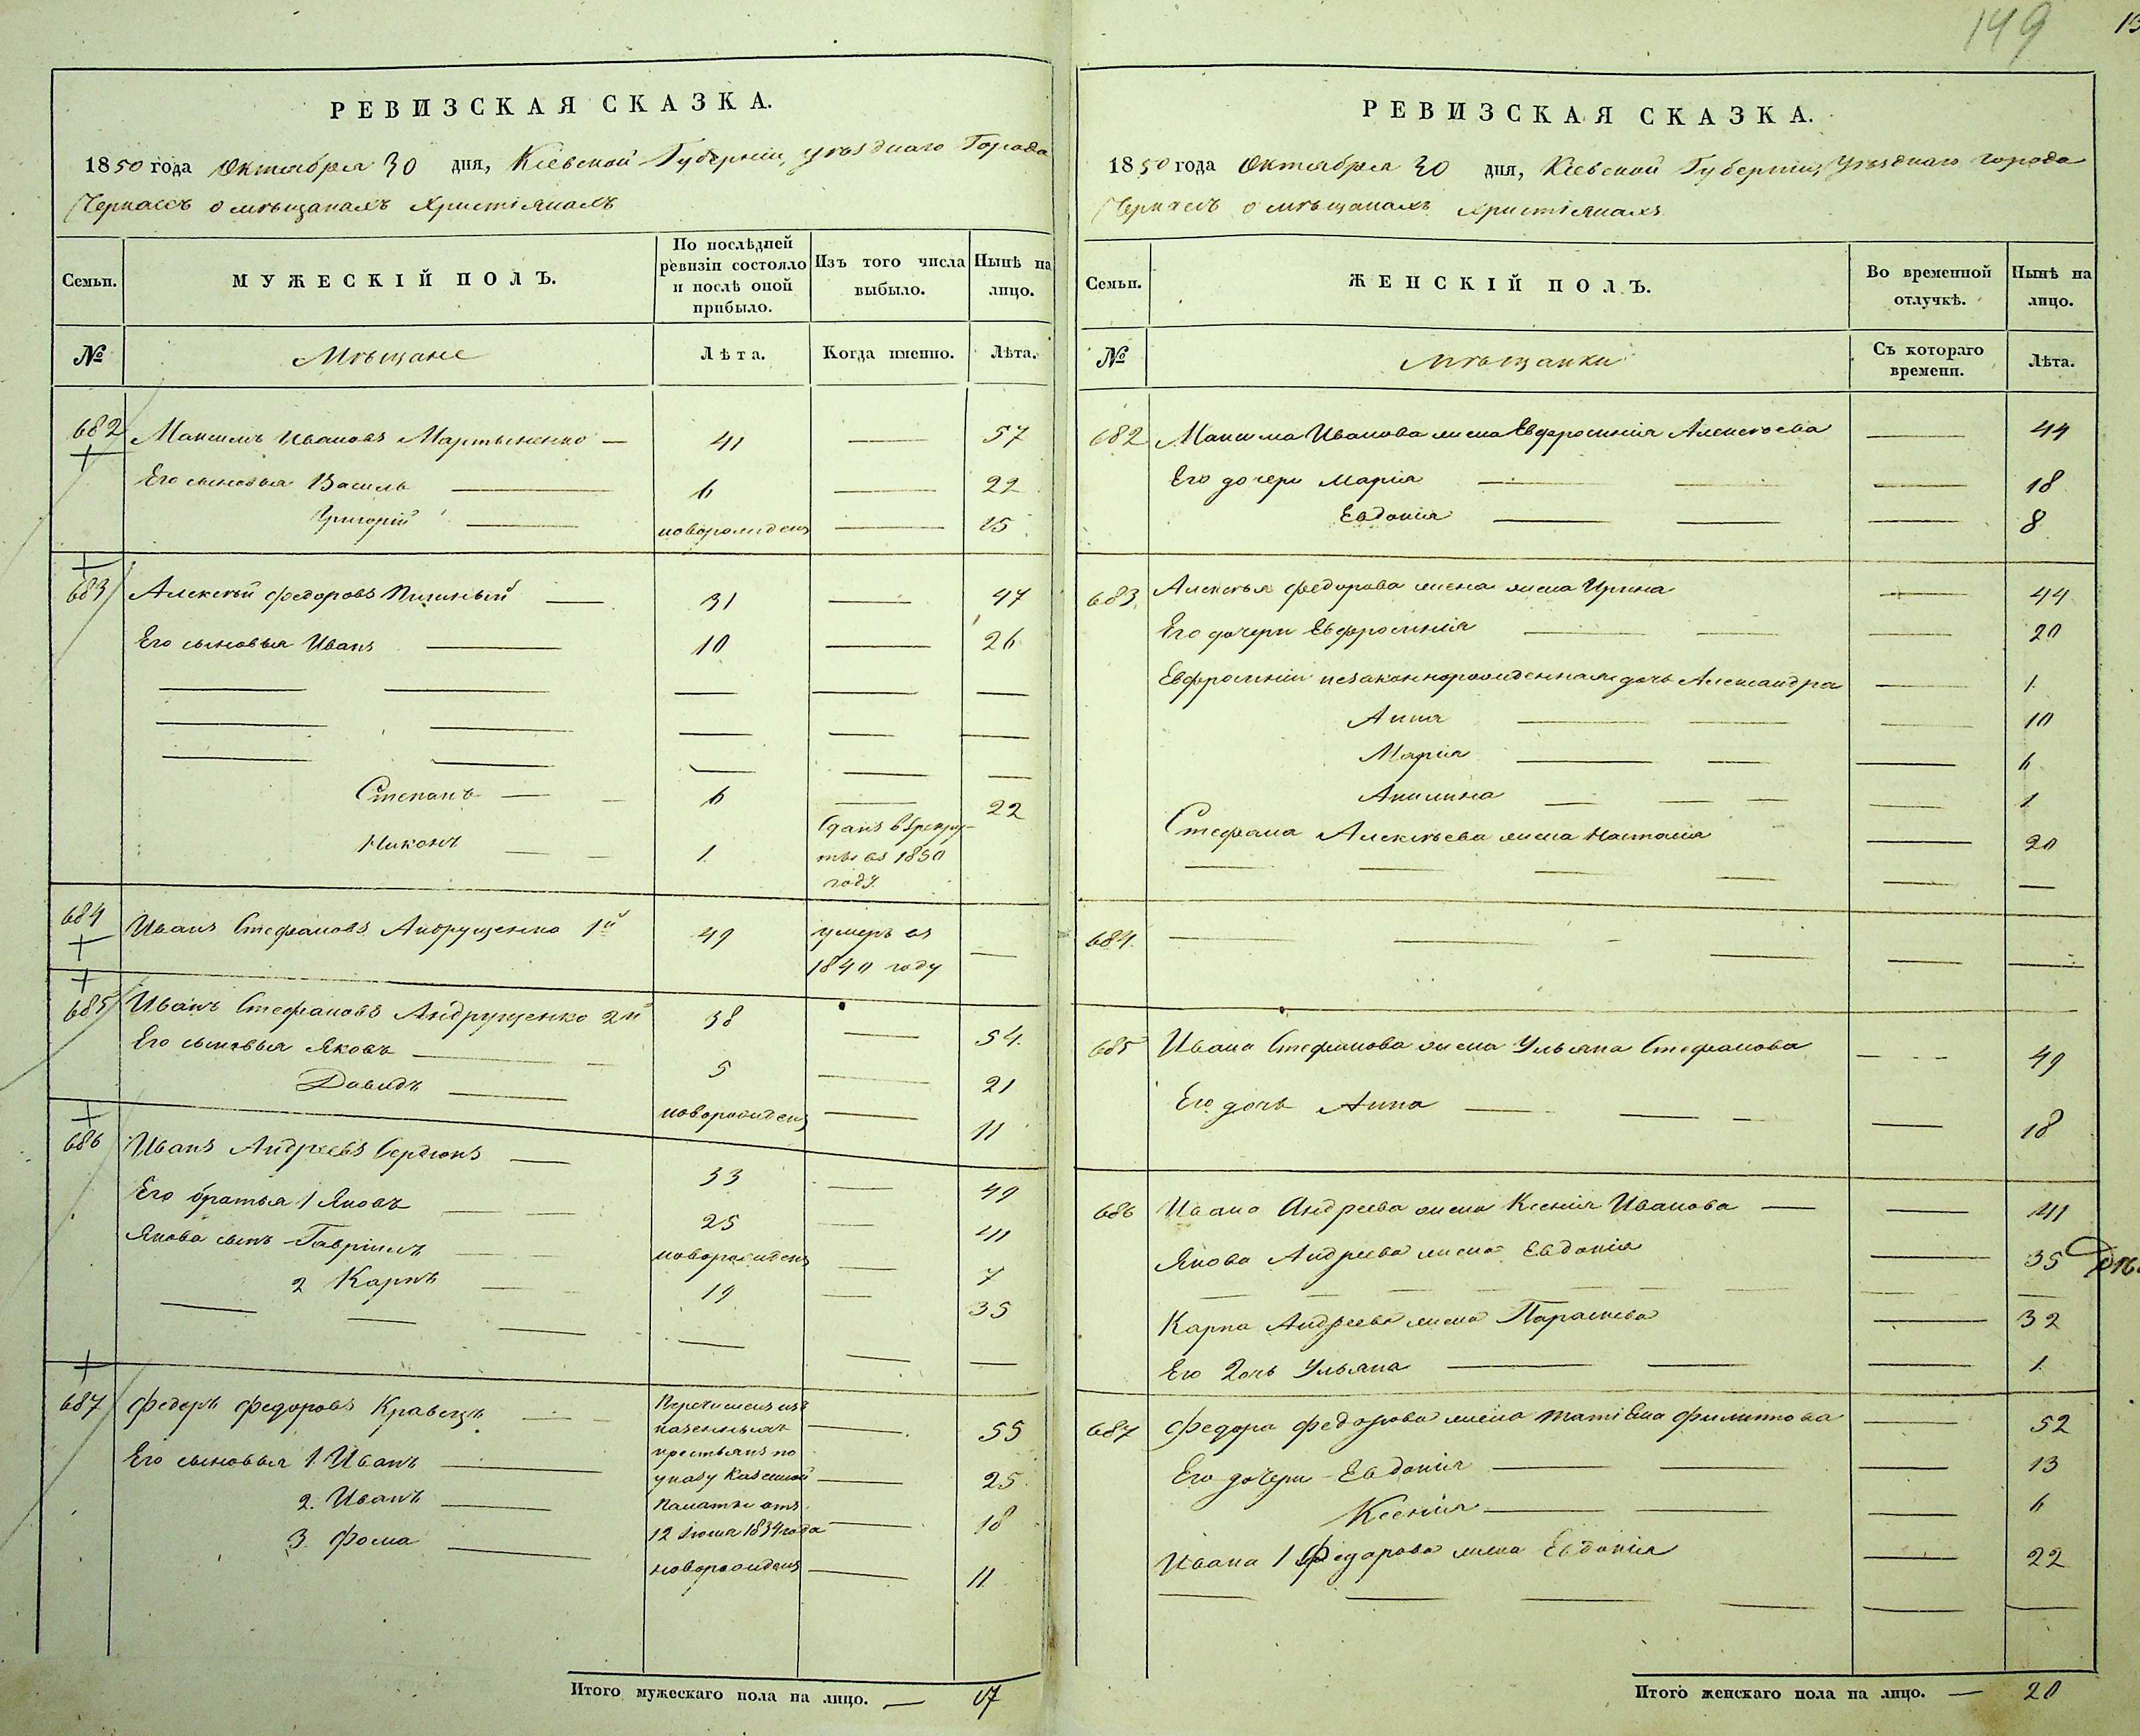 РЕВИЗСКАЯ СКАЗКА.
1850 года Октября 30 дня, Кіевской Губерніи, уѣзднаго Города
Черкасъ о мѣщанахъ Христіянахъ
Семьи. МУЖЕСКІЙ ПОЛЪ. По послѣдней ревизіи состояло и послѣ оной прибыло. Изъ того числа выбыло. Нынѣ на лицо.
№ Мѣщане Лѣта. Когда именно. Лѣта.
682 Максимъ Ивановъ Мартыненко — 41 — 57
Его сыновья Василь — 6 — 22
Григорій — новорожденъ — 15
683 Алексѣй Федоровъ — 31 — 47
Его сыновья Иванъ — 10 — 26
Степанъ — 6 — 22
Никонъ — 1 Сданъ въ рекру-
ты въ 1850
году.
684 Иванъ Стефановъ Андрущенко 1й 49 умеръ въ —
1840 году
685 Иванъ Стефановъ Андрущенко 2й 38 — 54
Его сыновья Яковъ — 5 — 21
Давидъ — новорожденъ — 11
686 Иванъ Андреевъ Сердюкъ — 33 — 49
Его братья 1 Яковъ — 25 — 41
Якова сынъ Гавріилъ — новорожденъ — 7
2 Карпъ — 19 — 35
687 Федоръ Федоровъ Кравецъ — Перечисленъ изъ — 55
казенныхъ
крестьянъ по
Его сыновья 1 Иванъ — указу Казенной — 25
2. Иванъ — Палаты отъ — 18
12 Іюня 1834 года
3. Фома — новорожденъ — 11
Итого мужескаго пола на лицо. — 17
149
РЕВИЗСКАЯ СКАЗКА.
1850 года Октября 30 дня, Кіевской Губерніи, Уѣзднаго города
Черкасъ о мѣщанахъ христіянахъ
Семьи. ЖЕНСКІЙ ПОЛЪ. Во временной отлучкѣ. Нынѣ на лицо.
№ Мѣщанки Съ котораго времени. Лѣта.
682 Максима Иванова жена Евфросинія Алексѣева — 44
Его дочери Марія — 18
Евдокія — 8
683 Алексѣя Федорова жена Ирина — 44
Его дочери Евфросинія — 20
Евфросиніи незаконнорожденная дочь Александра — 1
Анна — 10
Марія — 6
Акилина — 1
Стефана Алексѣева жена Настасія — 20
684 —
685 Ивана Стефанова жена Ульяна Стефанова — 49
Его дочь Анна — 18
686 Ивана Андреева жена Ксенія Иванова — 41
Якова Андреева жена Евдокія — 35
Карпа Андреева жена Параскева — 32
Его дочь Ульяна — 1
687 Федора Федорова жена Татіяна Филиппова — 52
Его дочери Евдокія — 13
Ксенія — 6
Ивана 1 Федорова жена Евдокія — 22
Итого женскаго пола на лицо. — 20